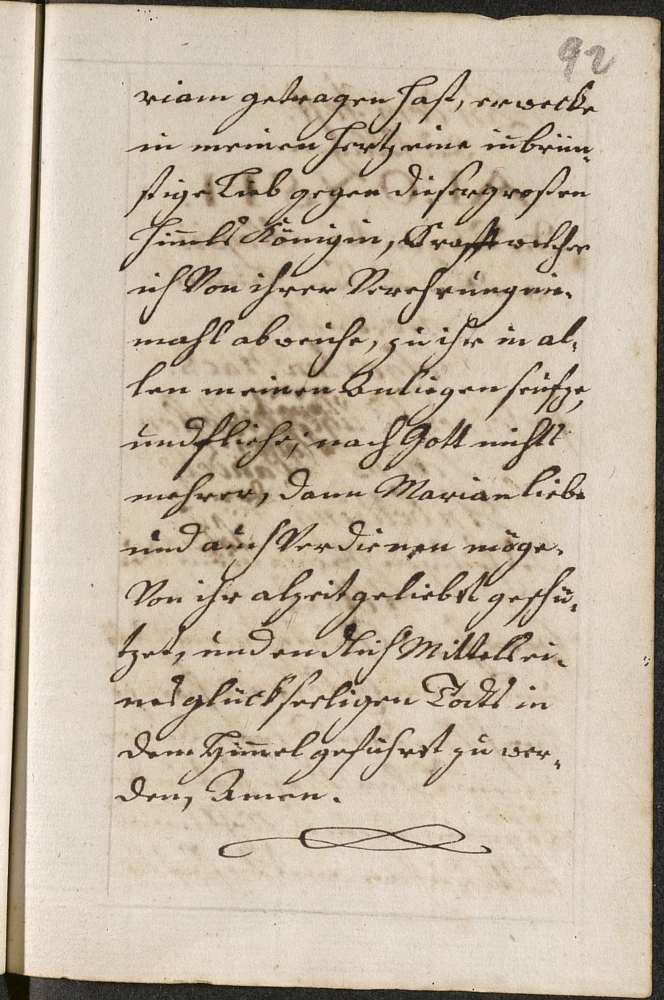 92
riam getragen hast, erwecke
in meinen Hertz eine inbrün-
stige Lieb gegen dieser großen
Him̅els Königin, Krafft welcher
ich Von ihrer Verehrung nie-
mahl abweiche, zu ihr in al-
len meinen Anliegen seufze,
und fliehe, nach Gott nichts
mehrers, dann Mariam liebe
und auch Verdienen möge,
Von ihr alzeit geliebt geschü-
tzet, und endlich Mittels ei-
nes glückseeligen Todts in
dem Him̅el geführt zu wer-
den, Amen.